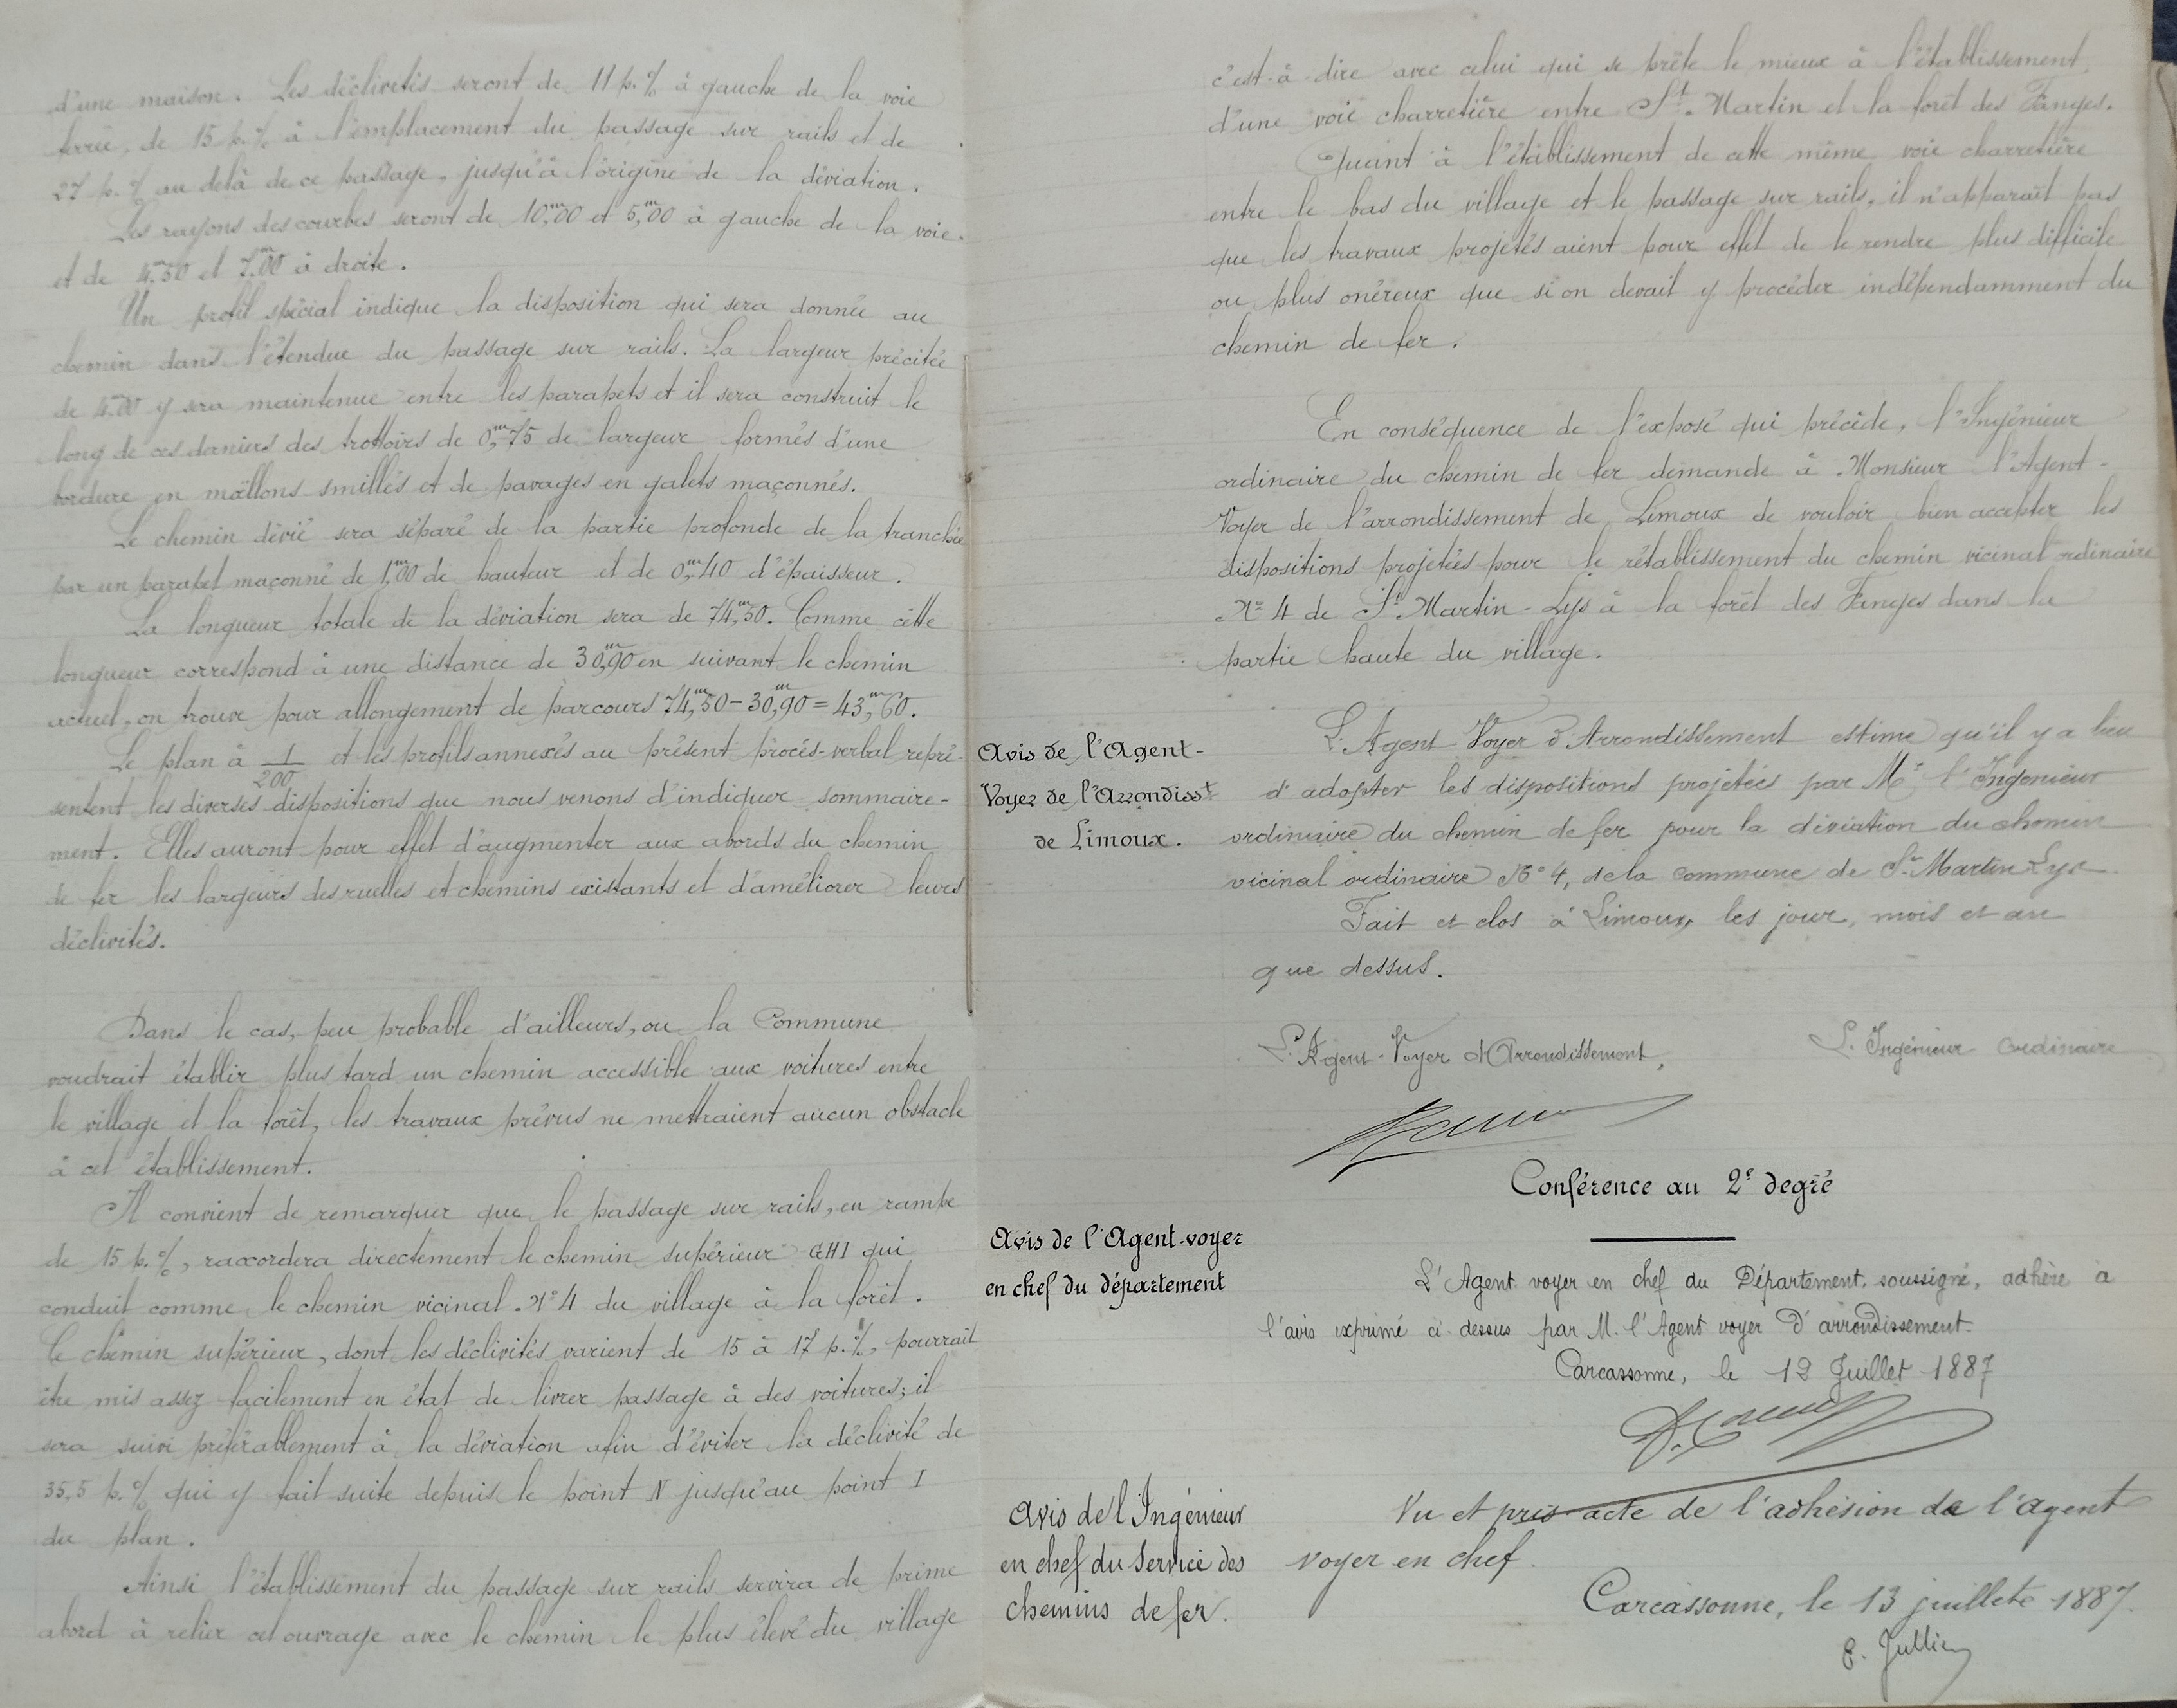 d'une maison. Les déclivités seront de 11 p. % à gauche de la voie
ferrée, de 15 p. % à l'emplacement du passage sur rails et de
27 p. % au delà de ce passage, jusqu'à l'origine de la déviation.
Les rayons des courbes seront de 10,m00 et 5,m00 à gauche de la voie
et de 4,m50 et 7,m00 à droite.
Un profil spécial indique la disposition qui sera donnée au
chemin dans l'étendue du passage sur rails. La largeur précitée
de 4,m00 y sera maintenue entre les parapets et il sera construit le
long de ces derniers des trottoirs de 0,m75 de largeur formés d'une
bordure en moëllons smillés et de pavages en galets maçonnés.
Le chemin dévié sera séparé de la partie profonde de la tranchée
par un parapet maçonné de 1,m00 de hauteur et de 0,m40 d'épaisseur.
La longueur totale de la déviation sera de 74,m50. Comme cette
longueur correspond à une distance de 30,m90 en suivant le chemin
actuel, on trouve pour allongement de parcours 74,m50 - 30,m90 = 43,m60.
Le plan à 1/200 et les profils annexés au présent procès-verbal repré-
sentent les diverses dispositions que nous venons d'indiquer sommaire-
ment. Elles auront pour effet d'augmenter aux abords du chemin
de fer les largeurs des ruelles et chemins existants et d'améliorer leurs
déclivités.
Dans le cas, peu probable d'ailleurs, ou la Commune
voudrait établir plus tard un chemin accessible aux voitures entre
le village et la forêt, les travaux prévus ne mettraient aucun obstacle
à cet établissement.
Il convient de remarquer que le passage sur rails, en rampe
de 15 p. %, raccordera directement le chemin supérieur GHI qui
conduit comme le chemin vicinal N° 4 du village à la forêt.
Ce chemin supérieur, dont les déclivités varient de 15 à 17 p. %, pourrait
être mis assez facilement en état de livrer passage à des voitures; il
sera suivi préférablement à la déviation afin d'éviter la déclivité de
35,5 p. % qui y fait suite depuis le point N jusqu'au point I
du plan.
Ainsi l'établissement du passage sur rails servira de prime
abord à relier cet ouvrage avec le chemin le plus élevé du village
c'est-à-dire avec celui qui se prête le mieux à l'établissement
d'une voie charretière entre St. Martin et la forêt des Fanges.
Quant à l'établissement de cette même voie charretière
entre le bas du village et le passage sur rails, il n'apparaît pas
que les travaux projetés aient pour effet de le rendre plus difficile
ou plus onéreux que si on devait y procéder indépendamment du
chemin de fer.
En conséquence de l'exposé qui précède, l'Ingénieur
ordinaire du chemin de fer demande à Monsieur l'Agent-
Voyer de l'arrondissement de Limoux de vouloir bien accepter les
dispositions projetées pour le rétablissement du chemin vicinal ordinaire
N° 4 de St. Martin-Lys à la forêt des Fanges dans la
partie haute du village.
Avis de l'Agent-
Voyer de l'Arrondisst
de Limoux.
L'Agent-Voyer d'Arrondissement estime qu'il y a lieu
d'adopter les dispositions projetées par Mr l'Ingénieur
ordinaire du chemin de fer pour la déviation du chemin
vicinal ordinaire N° 4, de la commune de St. Martin Lys.
Fait et clos à Limoux, les jour, mois et an
que dessus.
L'Agent-Voyer d'Arrondissement,
L'Ingénieur Ordinaire
Conférence au 2e degré
Avis de l'Agent-voyer
en chef du département
L'Agent voyer en chef du Département, soussigné, adhère à
l'avis exprimé ci-dessus par M. l'Agent voyer d'arrondissement.
Carcassonne, le 12 Juillet 1887
Avis de l'Ingénieur
en chef du Service des
chemins de fer.
Vu et pris acte de l'adhésion de l'agent
voyer en chef.
Carcassonne, le 13 juillet 1887.
E. Jullien